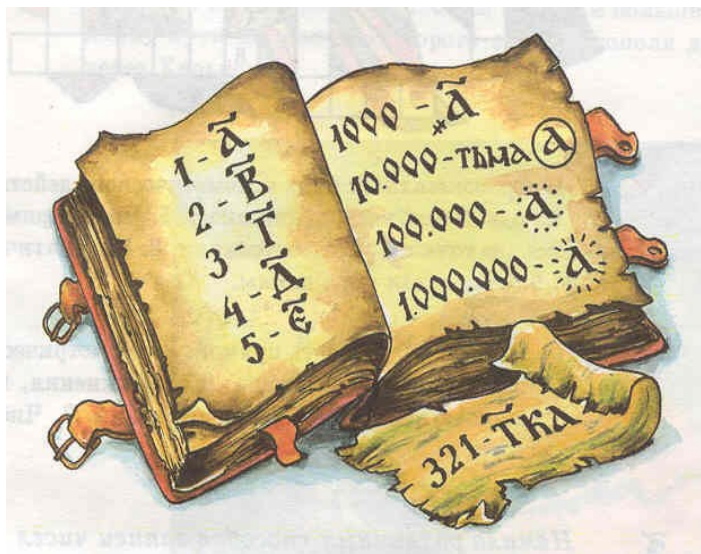 1 - а҃
2 - в҃
3 - г҃
4 - д҃
5 - є҃
1000 - ҂а҃
10.000 - тьма а
100.000 - а
1.000.000 - а
321 - т҃ка